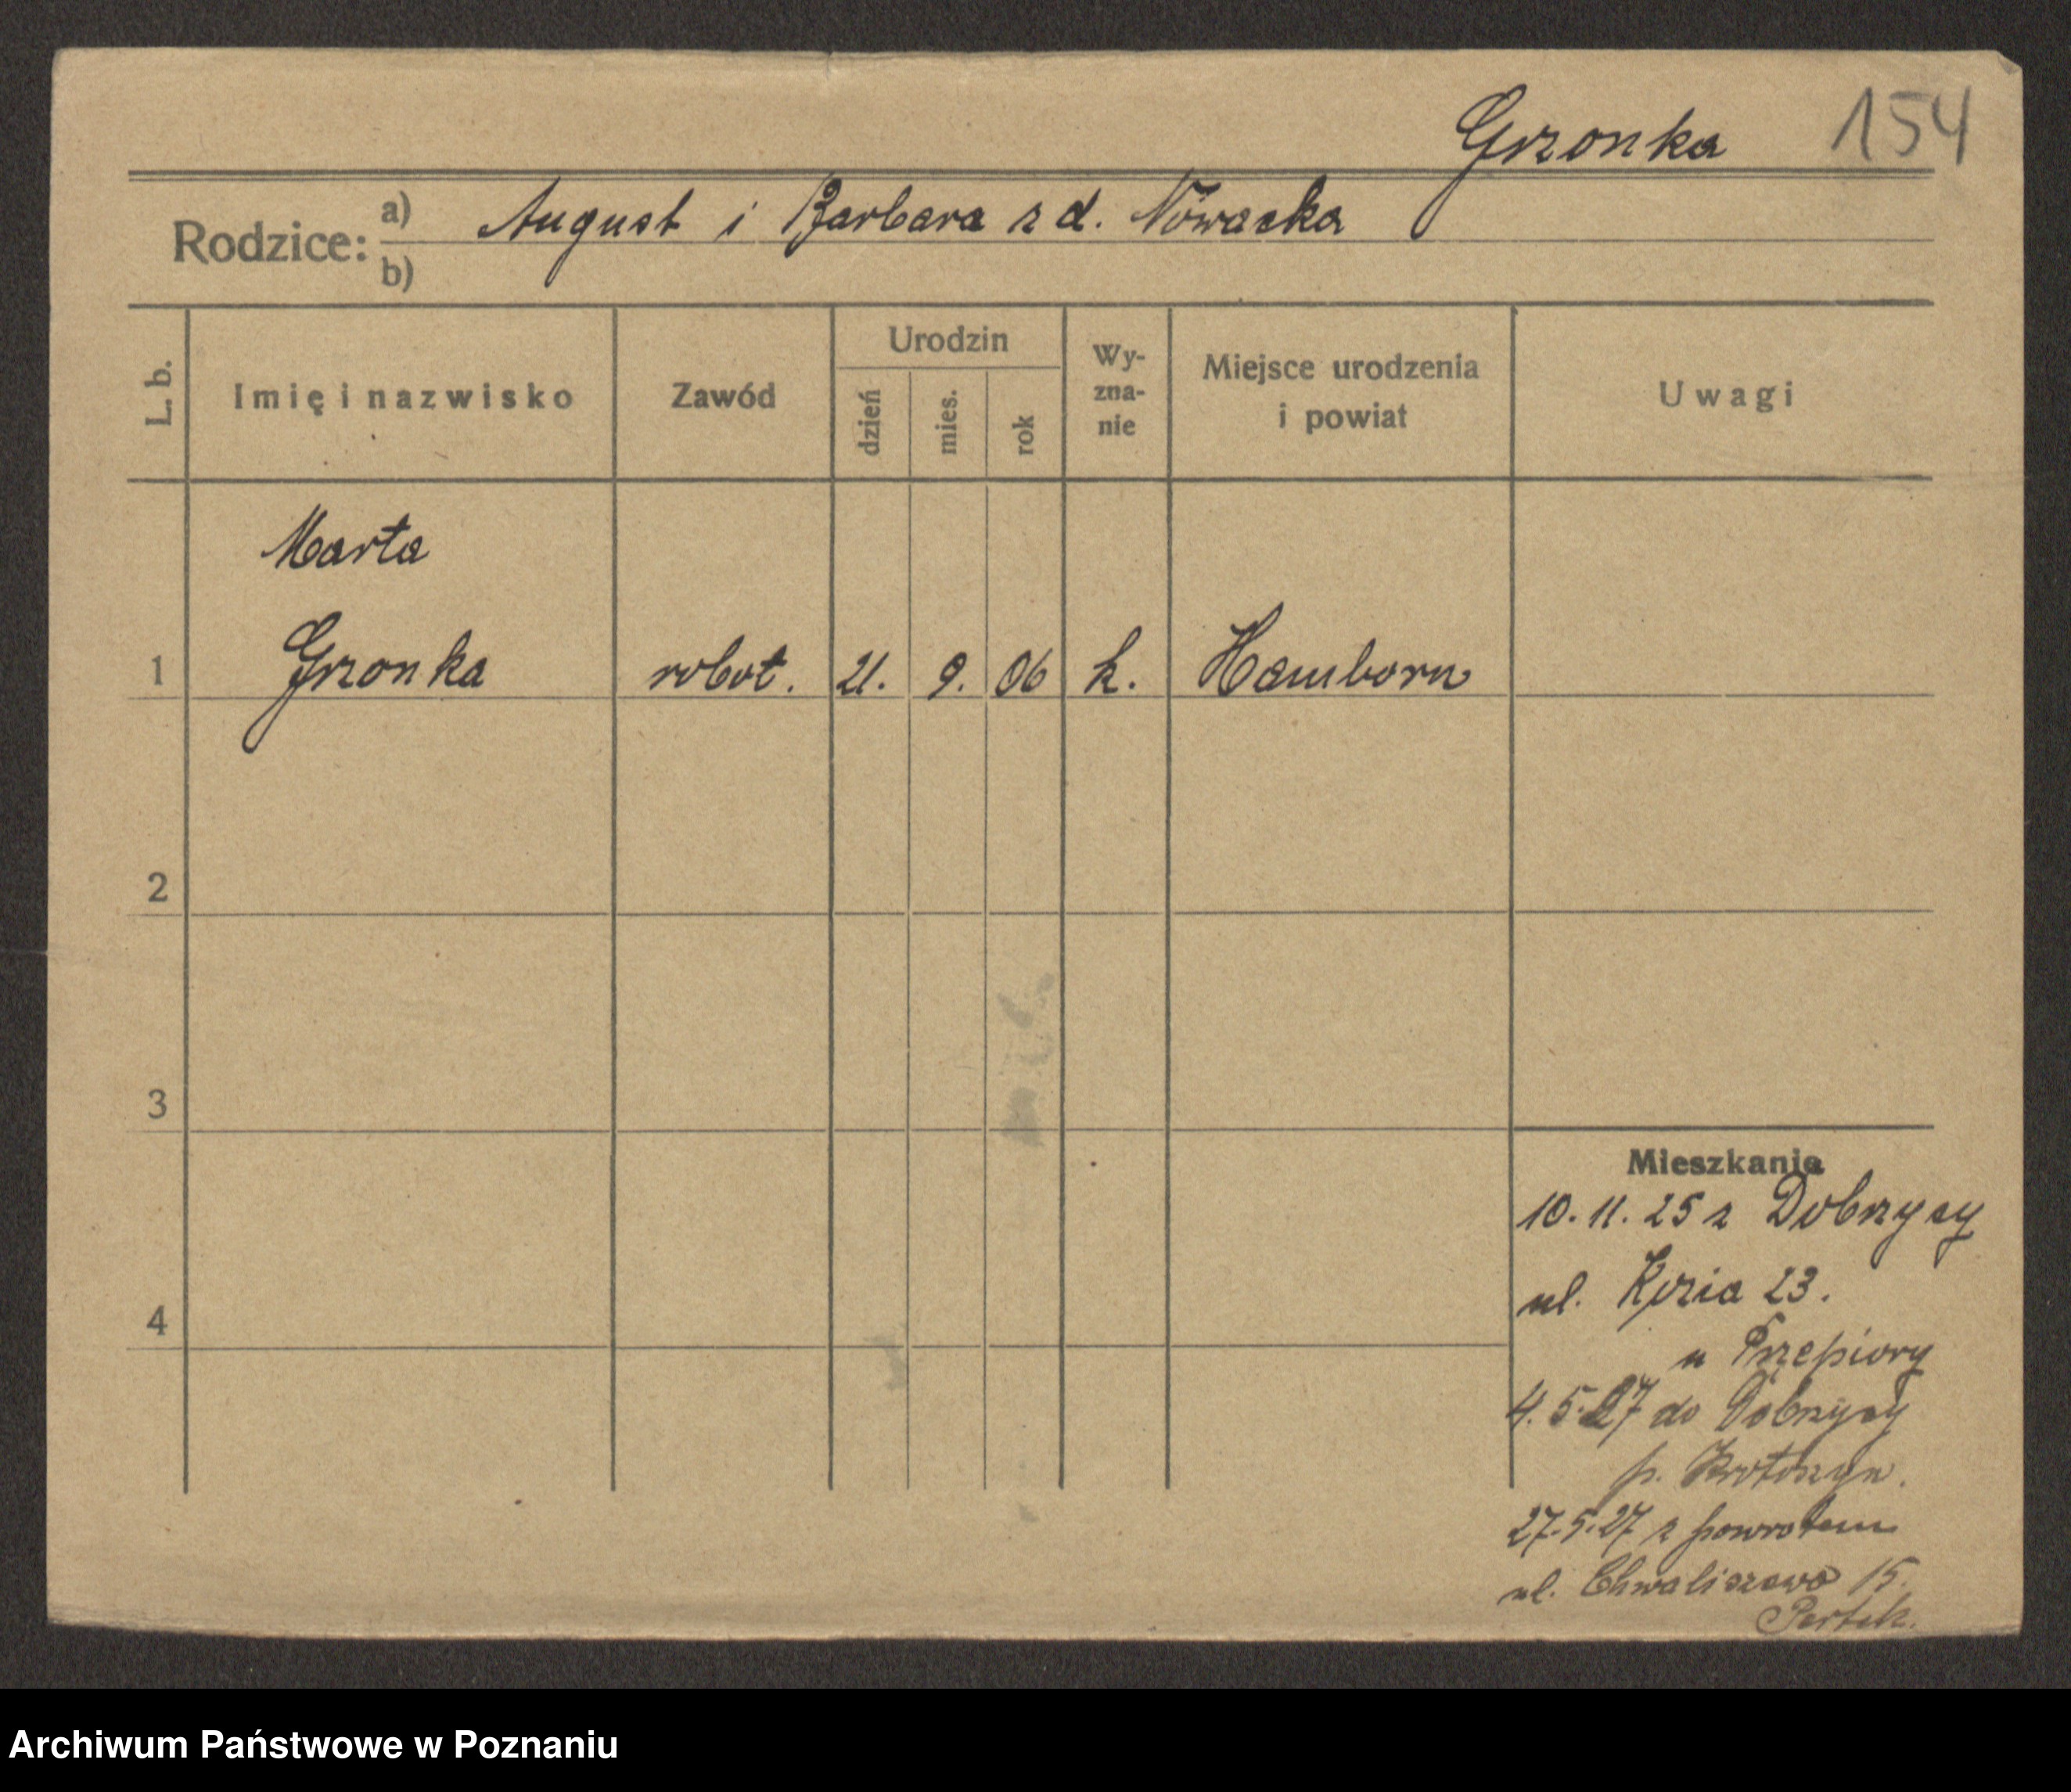 Grzonka 154
Rodzice: a) August i Barbara z d. Nowacka
b)
L. b.
Imię i nazwisko
Zawód
Urodzin
dzień
mies.
rok
Wy-
zna-
nie
Miejsce urodzenia
i powiat
Uwagi
Marta
1 Grzonka robot. 21. 9. 06 k. Hamborn
2
3
4
Mieszkania
10. 11. 25 z Dobrzycy
ul. Kozia 23.
u Przepiory
4. 5. 27 do Dobrzycy
p. Krotoszyn.
27. 5. 27 z powrotem
ul. Chwaliszewo 15.
Archiwum Państwowe w Poznaniu